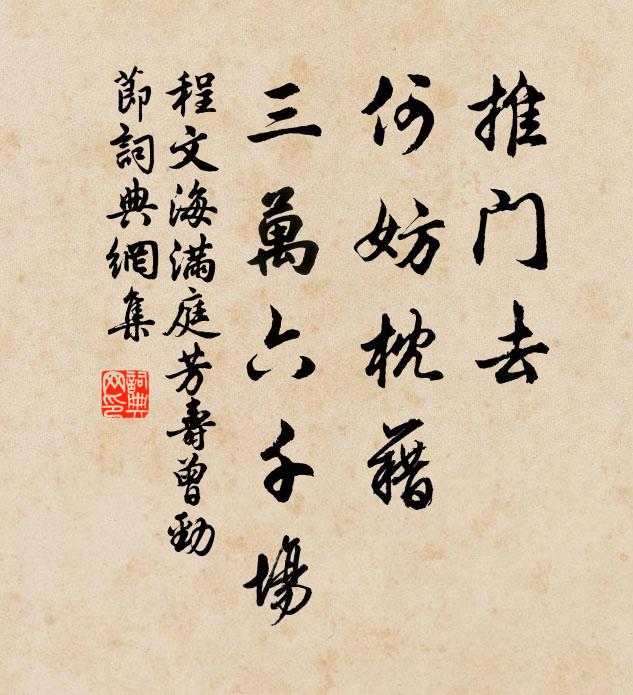 推門去
何妨枕藉
三萬六千場
程文海滿庭芳壽曾勁
節詞典網集
詞典网印